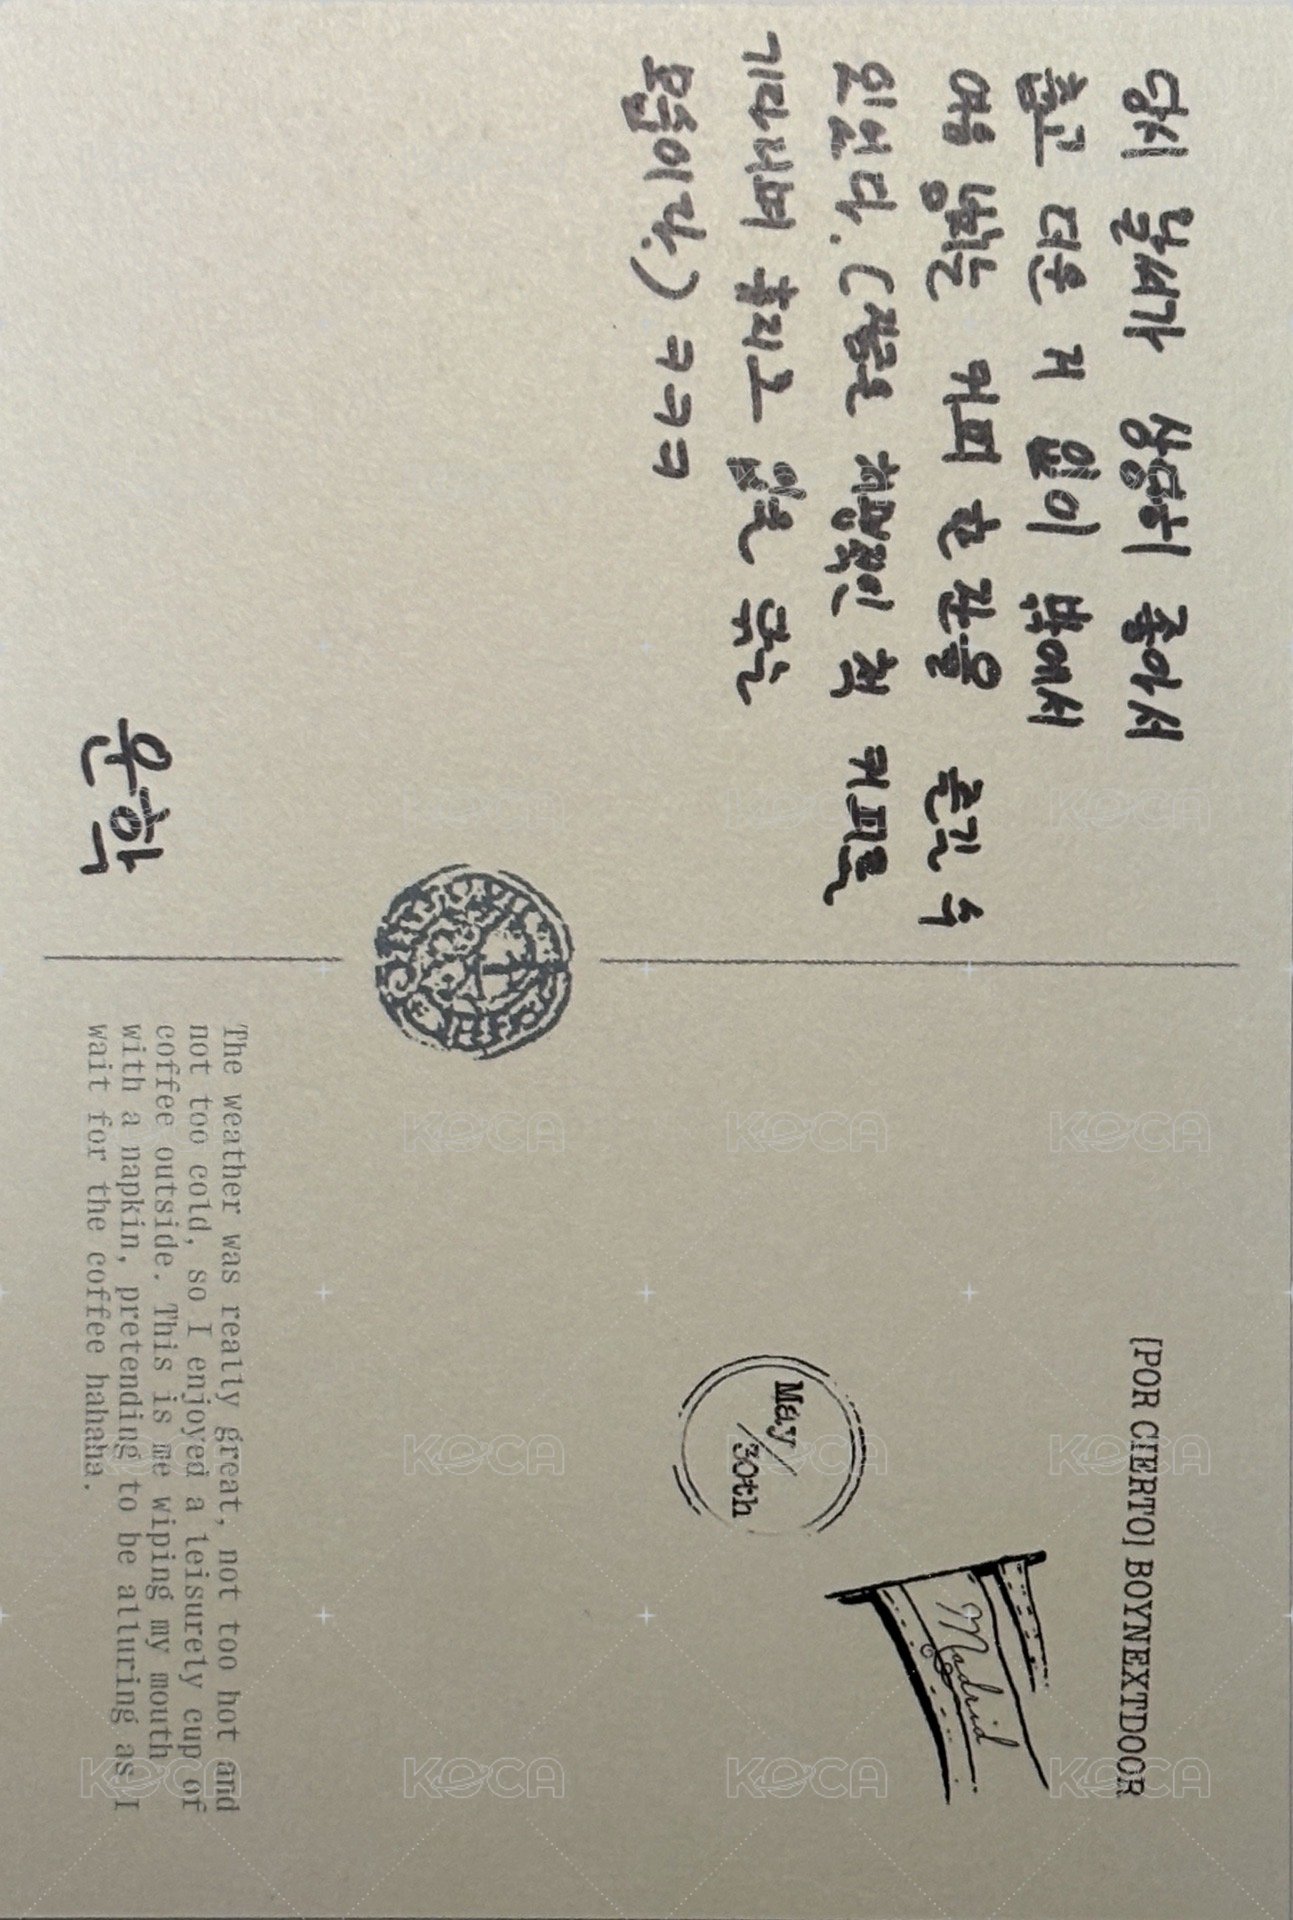 당시 날씨가 상당히 좋아서
춥고 더운 거 없이 밖에서
여유 넘치는 커피 한 잔을 즐길 수
있었다. (참고로 치명적인 척 커피를
기다리며 휴지로 입을 닦는
모습이다.) ㅋㅋㅋ
운학
[POR CIERTO] BOYNEXTDOOR
Madrid
May
/30th
The weather was really great, not too hot and
not too cold, so I enjoyed a leisurely cup of
coffee outside. This is me wiping my mouth
with a napkin, pretending to be alluring as I
wait for the coffee hahaha.
KOCA
KOCA
KOCA
KOCA
KOCA
KOCA
KOCA
KOCA
KOCA
KOCA